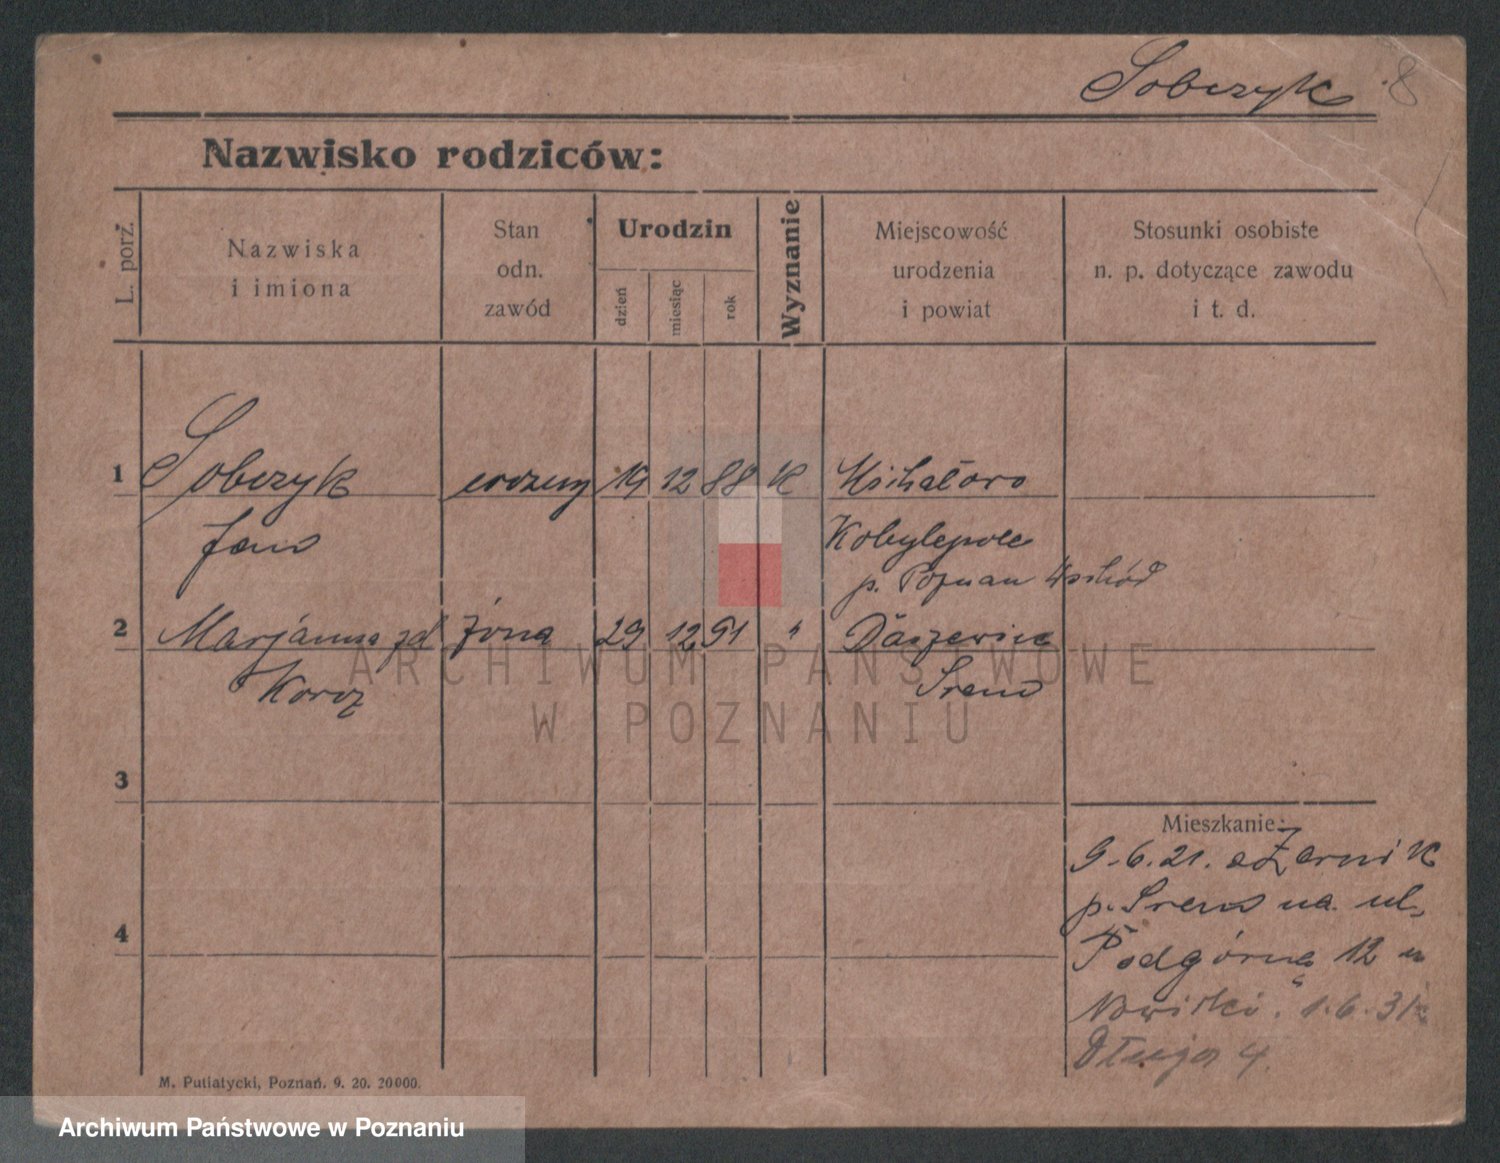 Sobczyk 8
Nazwisko rodziców:
L. porz.
Nazwiska
i imiona
Stan
odn.
zawód
Urodzin
dzień
miesiąc
rok
Wyznanie
Miejscowość
urodzenia
i powiat
Stosunki osobiste
n. p. dotyczące zawodu
i t. d.
1 Sobczyk 19 12 88 K
Jan Kobylepole
p. Poznań Wschód
2 Marjanna zd żona 29 12 91 "
Śrem
ARCHIWUM PAŃSTWOWE
W POZNANIU
3
Mieszkanie:
9.6.21. z Żernik
p. Śrem na ul.
4
Podgórna 12 u
1.6.31
Długa 4.
M. Putiatycki, Poznań. 9. 20. 20000.
Archiwum Państwowe w Poznaniu